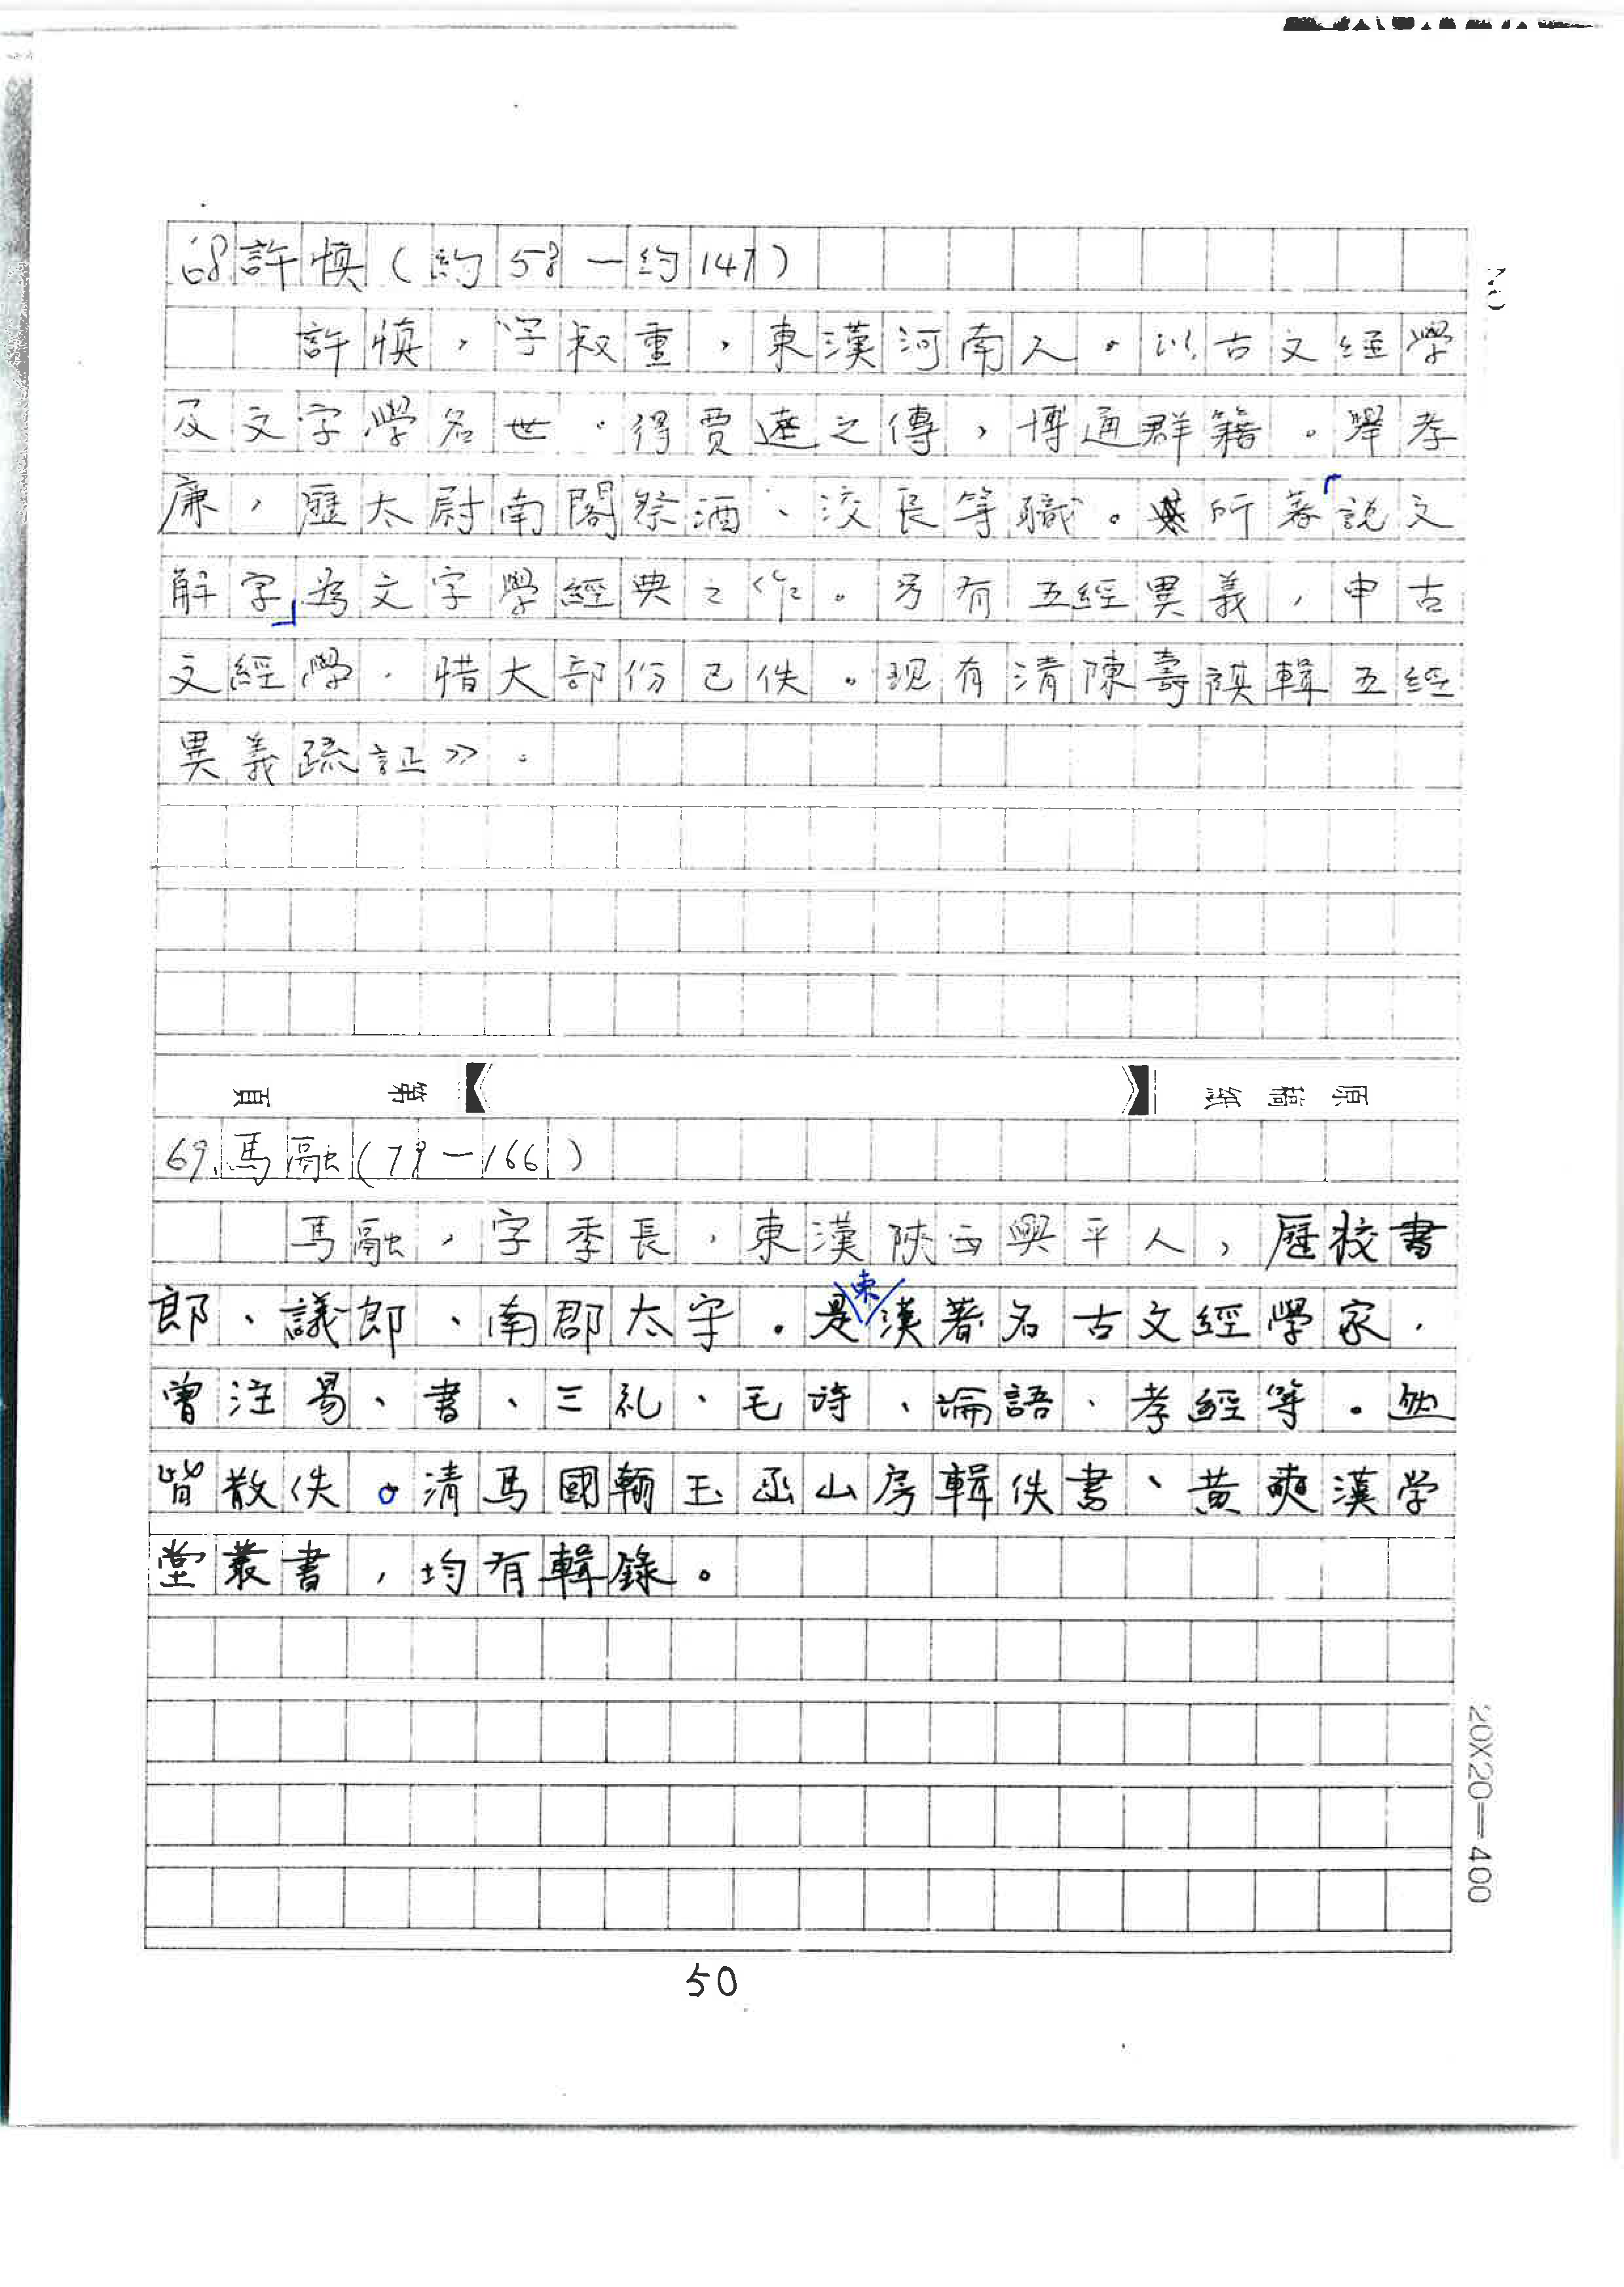 68許慎(約58—約147)
許慎，字叔重，東漢河南人。以古文經學
及文字學名世。得賈逵之傳，博通群籍。舉孝
廉，歷太尉南閣祭酒、洨長等職。所著「說文
解字」為文字學經典之作。另有五經異義，申古
文經學，惜大部份已佚。現有清陳壽祺輯五經
異義疏証》。
頁 第 原稿紙
69.馬融(79—166)
馬融，字季長，東漢陝西興平人，歷校書
郎、議郎、南郡太守。是東漢著名古文經學家，
曾注易、書、三礼、毛詩、論語、孝經等。然
皆散佚。清馬國翰玉函山房輯佚書、黃奭漢学
堂叢書，均有輯錄。
20X20=400
50